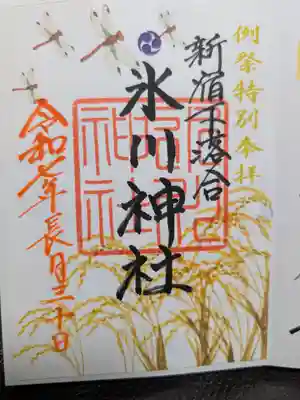 例祭特別奉拝
新宿下落合
氷川神社
令和七年長月二十日